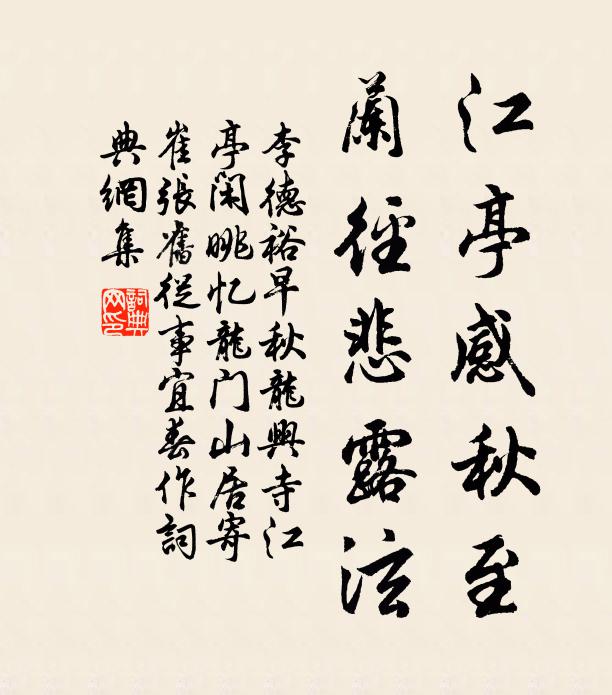 江亭感秋至
蘭徑悲露泫
李德裕早秋龍興寺江
亭閑眺忆龍门山居寄
崔張舊從事宜春作詞
典網集
詞典
网印